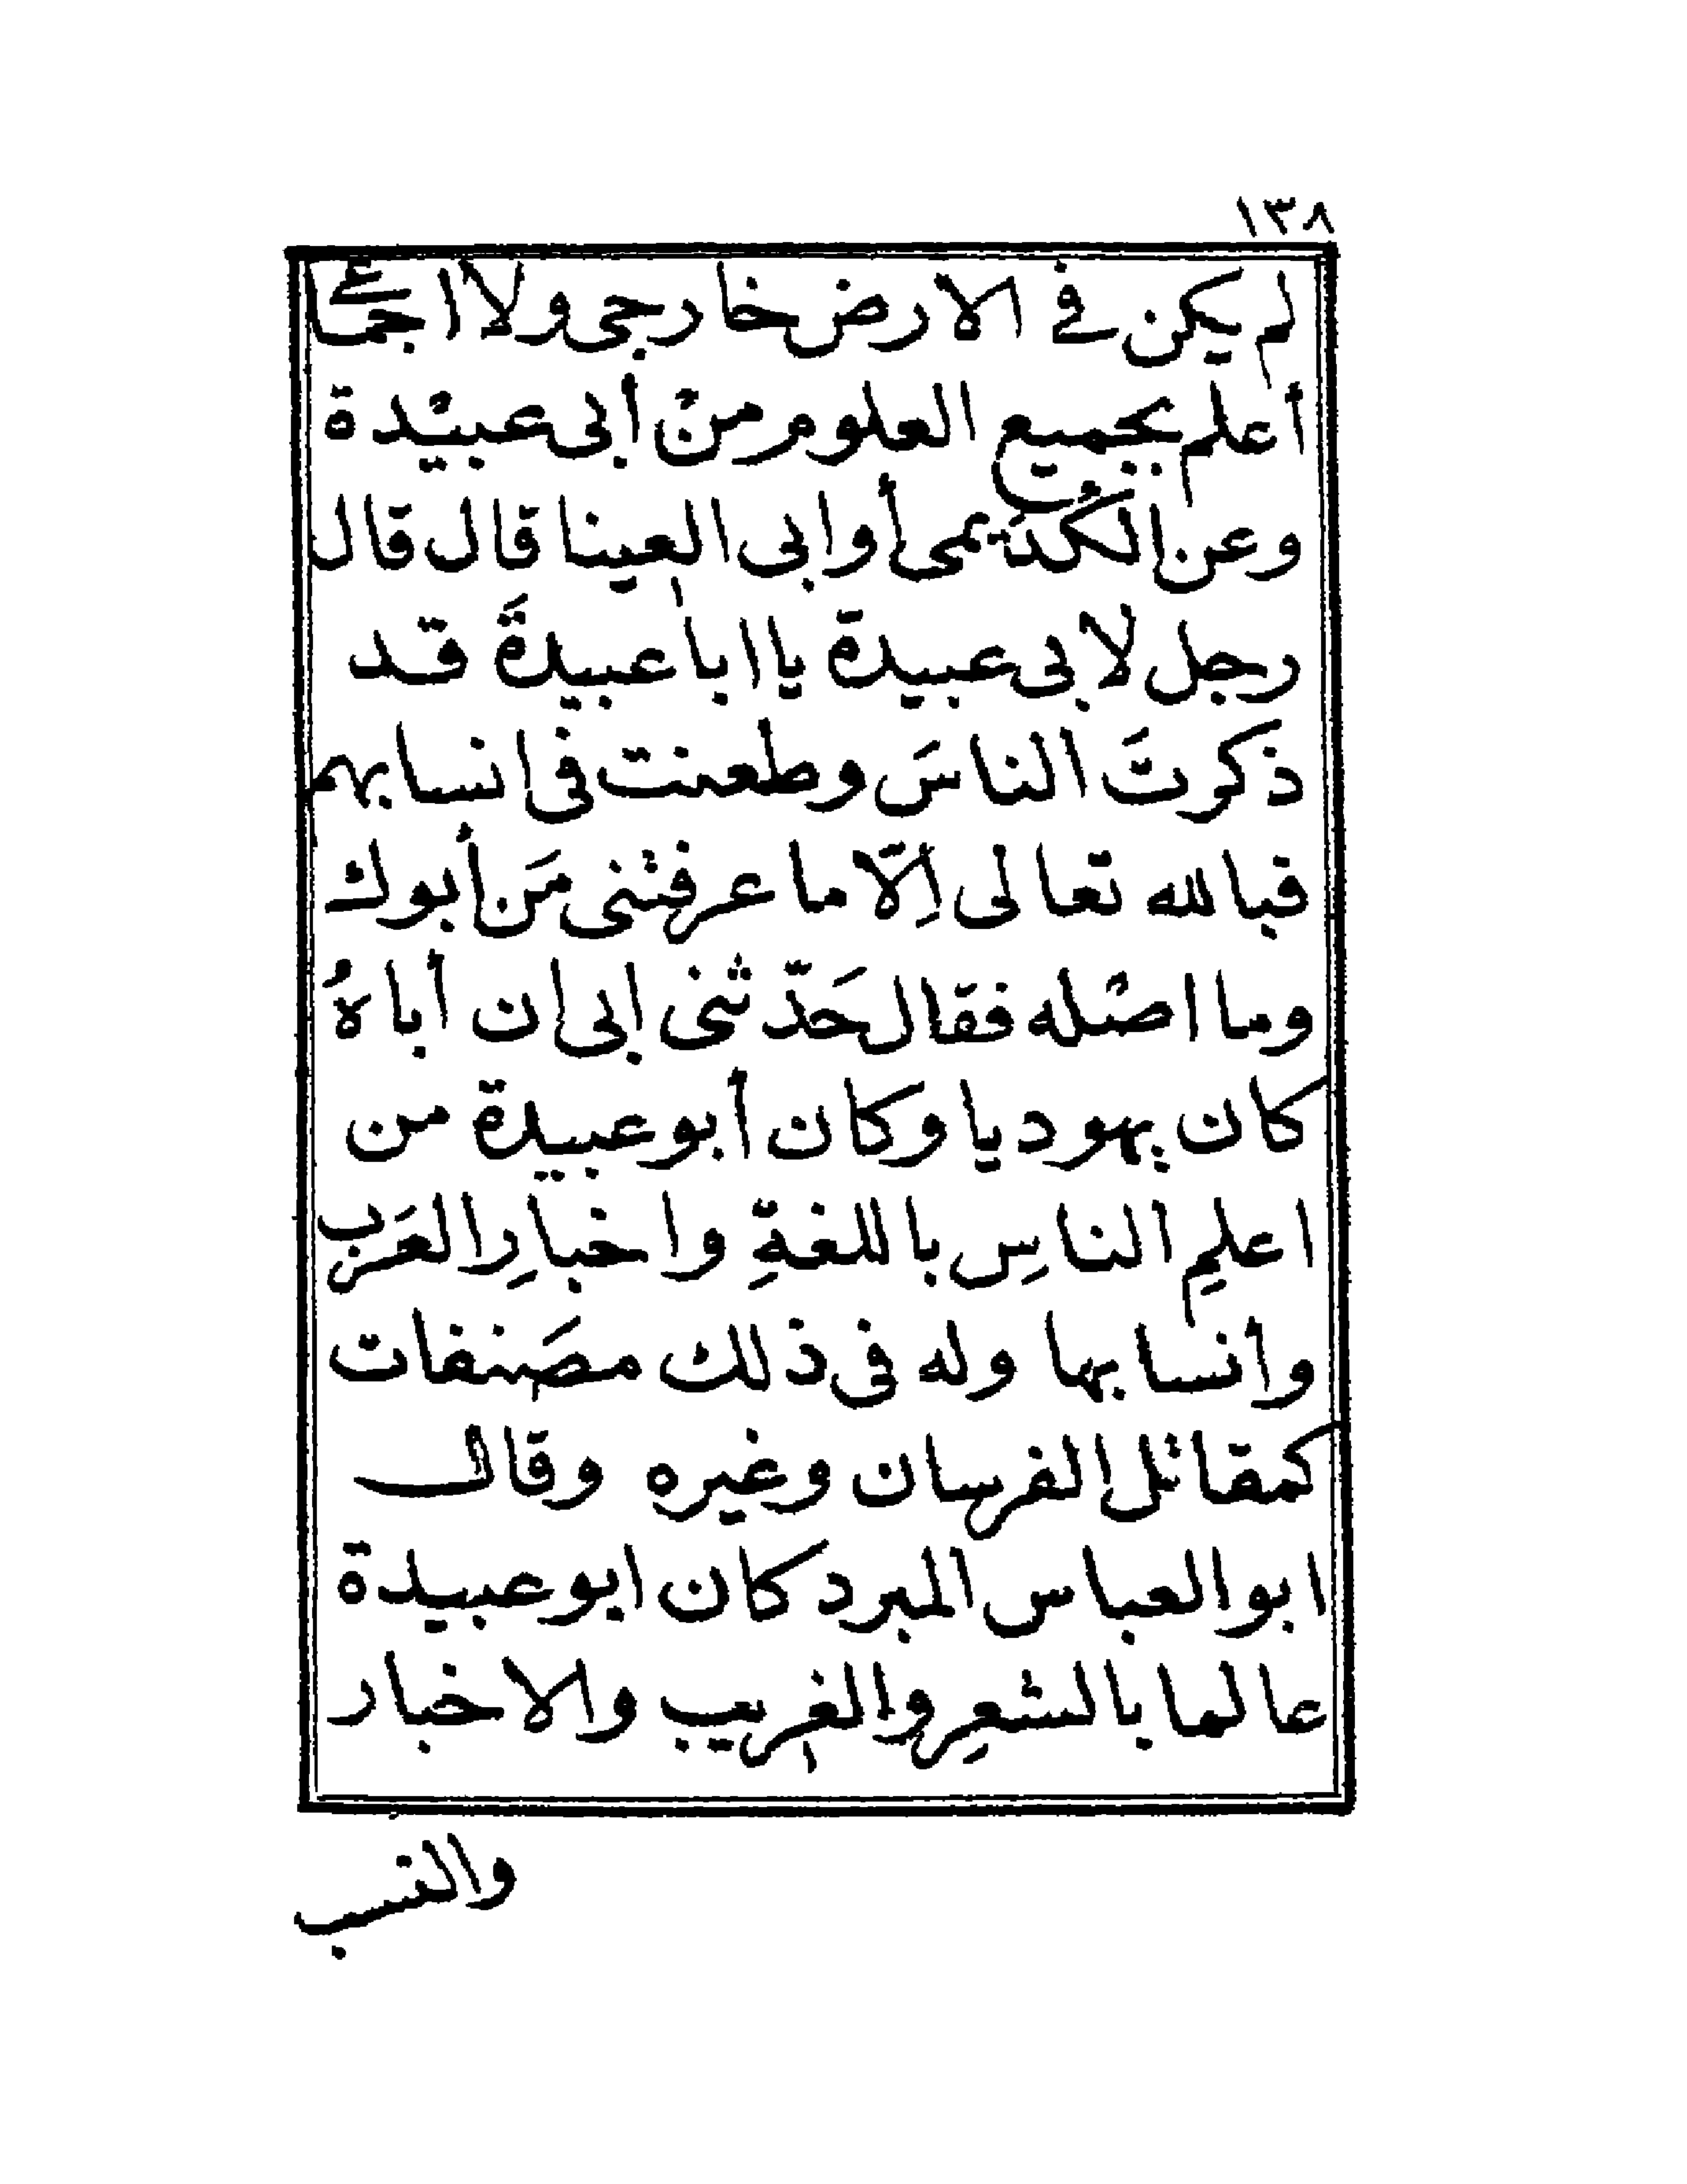 ١٣٨
لم يكن فى الارض خارجى ولا اجماعى
أعلم بجميع العلوم منْ أبى عبيْدة
وعن الكُدَيمى أوابى العينا قال قال
رجل لابى عبيدة يا ابا عبيدةَ قد
ذكرتَ الناسَ وطعنت فى انسابهم
فبالله تعالى اِلّا ما عرفتنى مَن أبوك
وما اصْله فقال حَدّثنى ابى ان أباهُ
كان يهوديا وكان أبو عبيدة من
اعلمِ الناسِ باللغةِ واخبارِ العَرب
وانسابها وله فى ذلك مصَنفات
كمقاتل الفرسان وغيره وقال
ابو العباس المبرد كان ابو عبيدة
عالما بالشعرِ والغريب والاخبار
والنسب